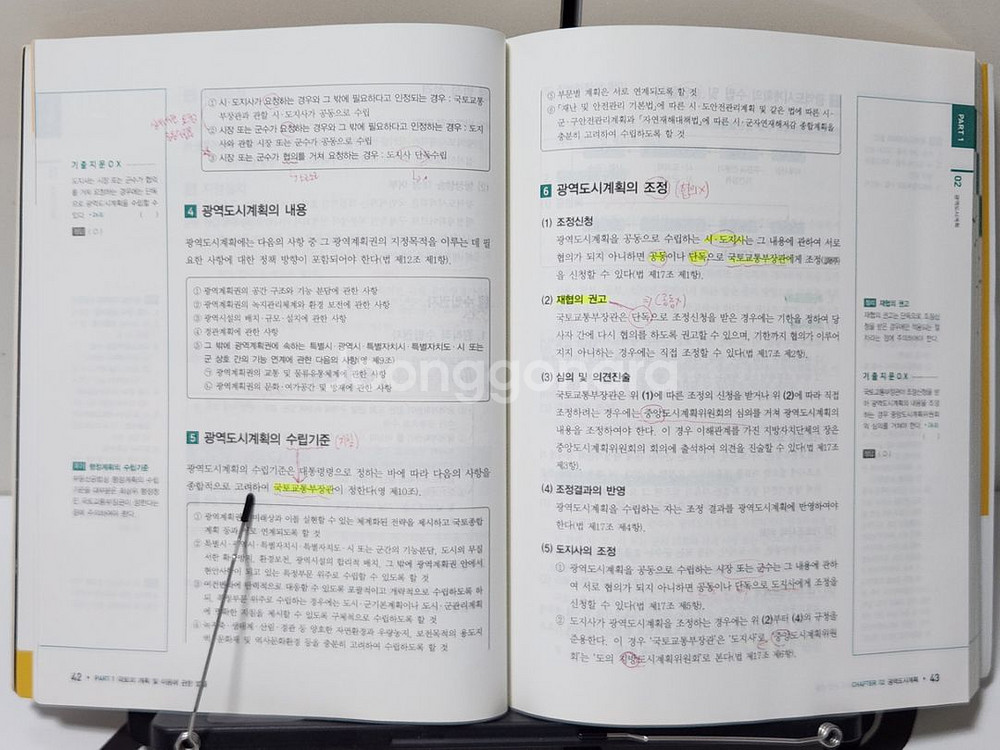 ① 시·도지사가 요청하는 경우와 그 밖에 필요하다고 인정되는 경우 : 국토교통
부장관과 관할 시·도지사가 공동으로 수립
② 시장 또는 군수가 요청하는 경우와 그 밖에 필요하다고 인정하는 경우 : 도지
사와 관할 시장 또는 군수가 공동으로 수립
③ 시장 또는 군수가 협의를 거쳐 요청하는 경우 : 도지사 단독수립
기출지문OX
도지사는 시장 또는 군수가 협의
를 거쳐 요청하는 경우에는 단독
으로 광역도시계획을 수립할 수
있다.
( )
정답 (O)
4 광역도시계획의 내용
광역도시계획에는 다음의 사항 중 그 광역계획권의 지정목적을 이루는 데 필
요한 사항에 대한 정책 방향이 포함되어야 한다(법 제12조 제1항).
① 광역계획권의 공간 구조와 기능 분담에 관한 사항
② 광역계획권의 녹지관리체계와 환경 보전에 관한 사항
③ 광역시설의 배치·규모·설치에 관한 사항
④ 경관계획에 관한 사항
⑤ 그 밖에 광역계획권에 속하는 특별시·광역시·특별자치시·특별자치도·시 또는
군 상호 간의 기능 연계에 관한 다음의 사항(영 제9조)
㉠ 광역계획권의 교통 및 물류유통체계에 관한 사항
㉡ 광역계획권의 문화·여가공간 및 방재에 관한 사항
5 광역도시계획의 수립기준
광역도시계획의 수립기준은 대통령령으로 정하는 바에 따라 다음의 사항을
종합적으로 고려하여 국토교통부장관이 정한다(영 제10조).
행정계획의 수립기준
① 광역계획권의 미래상과 이를 실현할 수 있는 체계화된 전략을 제시하고 국토종합
계획 등과 서로 연계되도록 할 것
② 특별시·광역시·특별자치시·특별자치도·시 또는 군간의 기능분담, 도시의 무질
서한 확산방지, 환경보전, 광역시설의 합리적 배치, 그 밖에 광역계획권 안에서
현안사항이 되고 있는 특정부문 위주로 수립할 수 있도록 할 것
③ 여건변화에 탄력적으로 대응할 수 있도록 포괄적이고 개략적으로 수립하도록 하
되, 특정부문 위주로 수립하는 경우에는 도시·군기본계획이나 도시·군관리계획
에 명확한 지침을 제시할 수 있도록 구체적으로 수립하도록 할 것
④ 녹지축·생태계·산림·경관 등 양호한 자연환경과 우량농지, 보전목적의 용도지
역, 문화재 및 역사문화환경 등을 충분히 고려하여 수립하도록 할 것
42 • PART 1 국토의 계획 및 이용에 관한 법률
⑤ 부문별 계획은 서로 연계되도록 할 것
⑥ 「재난 및 안전관리 기본법」에 따른 시·도안전관리계획 및 같은 법에 따른 시·
군·구안전관리계획과 「자연재해대책법」에 따른 시·군자연재해저감 종합계획을
충분히 고려하여 수립하도록 할 것
PART 1
02
광역도시계획
6 광역도시계획의 조정 (협의X)
(1) 조정신청
광역도시계획을 공동으로 수립하는 시·도지사는 그 내용에 관하여 서로
협의가 되지 아니하면 공동이나 단독으로 국토교통부장관에게 조정(調停)
을 신청할 수 있다(법 제17조 제1항).
(2) 재협의 권고
국토교통부장관은 단독으로 조정신청을 받은 경우에는 기한을 정하여 당
사자 간에 다시 협의를 하도록 권고할 수 있으며, 기한까지 협의가 이루어
지지 아니하는 경우에는 직접 조정할 수 있다(법 제17조 제2항).
재협의 권고
재협의 권고는 단독으로 조정신
청을 받은 경우에만 적용되는 절
차라는 점에 주의하여야 한다.
(3) 심의 및 의견진술
국토교통부장관은 위 (1)에 따른 조정의 신청을 받거나 위 (2)에 따라 직접
조정하려는 경우에는 중앙도시계획위원회의 심의를 거쳐 광역도시계획의
내용을 조정하여야 한다. 이 경우 이해관계를 가진 지방자치단체의 장은
중앙도시계획위원회의 회의에 출석하여 의견을 진술할 수 있다(법 제17조
제3항).
기출지문OX
국토교통부장관은 조정신청을 받
아 광역도시계획의 내용을 조정
하는 경우 중앙도시계획위원회
의 심의를 거쳐야 한다.
( )
정답 (O)
(4) 조정결과의 반영
광역도시계획을 수립하는 자는 조정 결과를 광역도시계획에 반영하여야
한다(법 제17조 제4항).
(5) 도지사의 조정
① 광역도시계획을 공동으로 수립하는 시장 또는 군수는 그 내용에 관하
여 서로 협의가 되지 아니하면 공동이나 단독으로 도지사에게 조정을
신청할 수 있다(법 제17조 제5항).
② 도지사가 광역도시계획을 조정하는 경우에는 위 (2)부터 (4)의 규정을
준용한다. 이 경우 '국토교통부장관'은 '도지사'로, '중앙도시계획위원
회'는 '도의 지방도시계획위원회'로 본다(법 제17조 제6항).
CHAPTER 02 광역도시계획 • 43